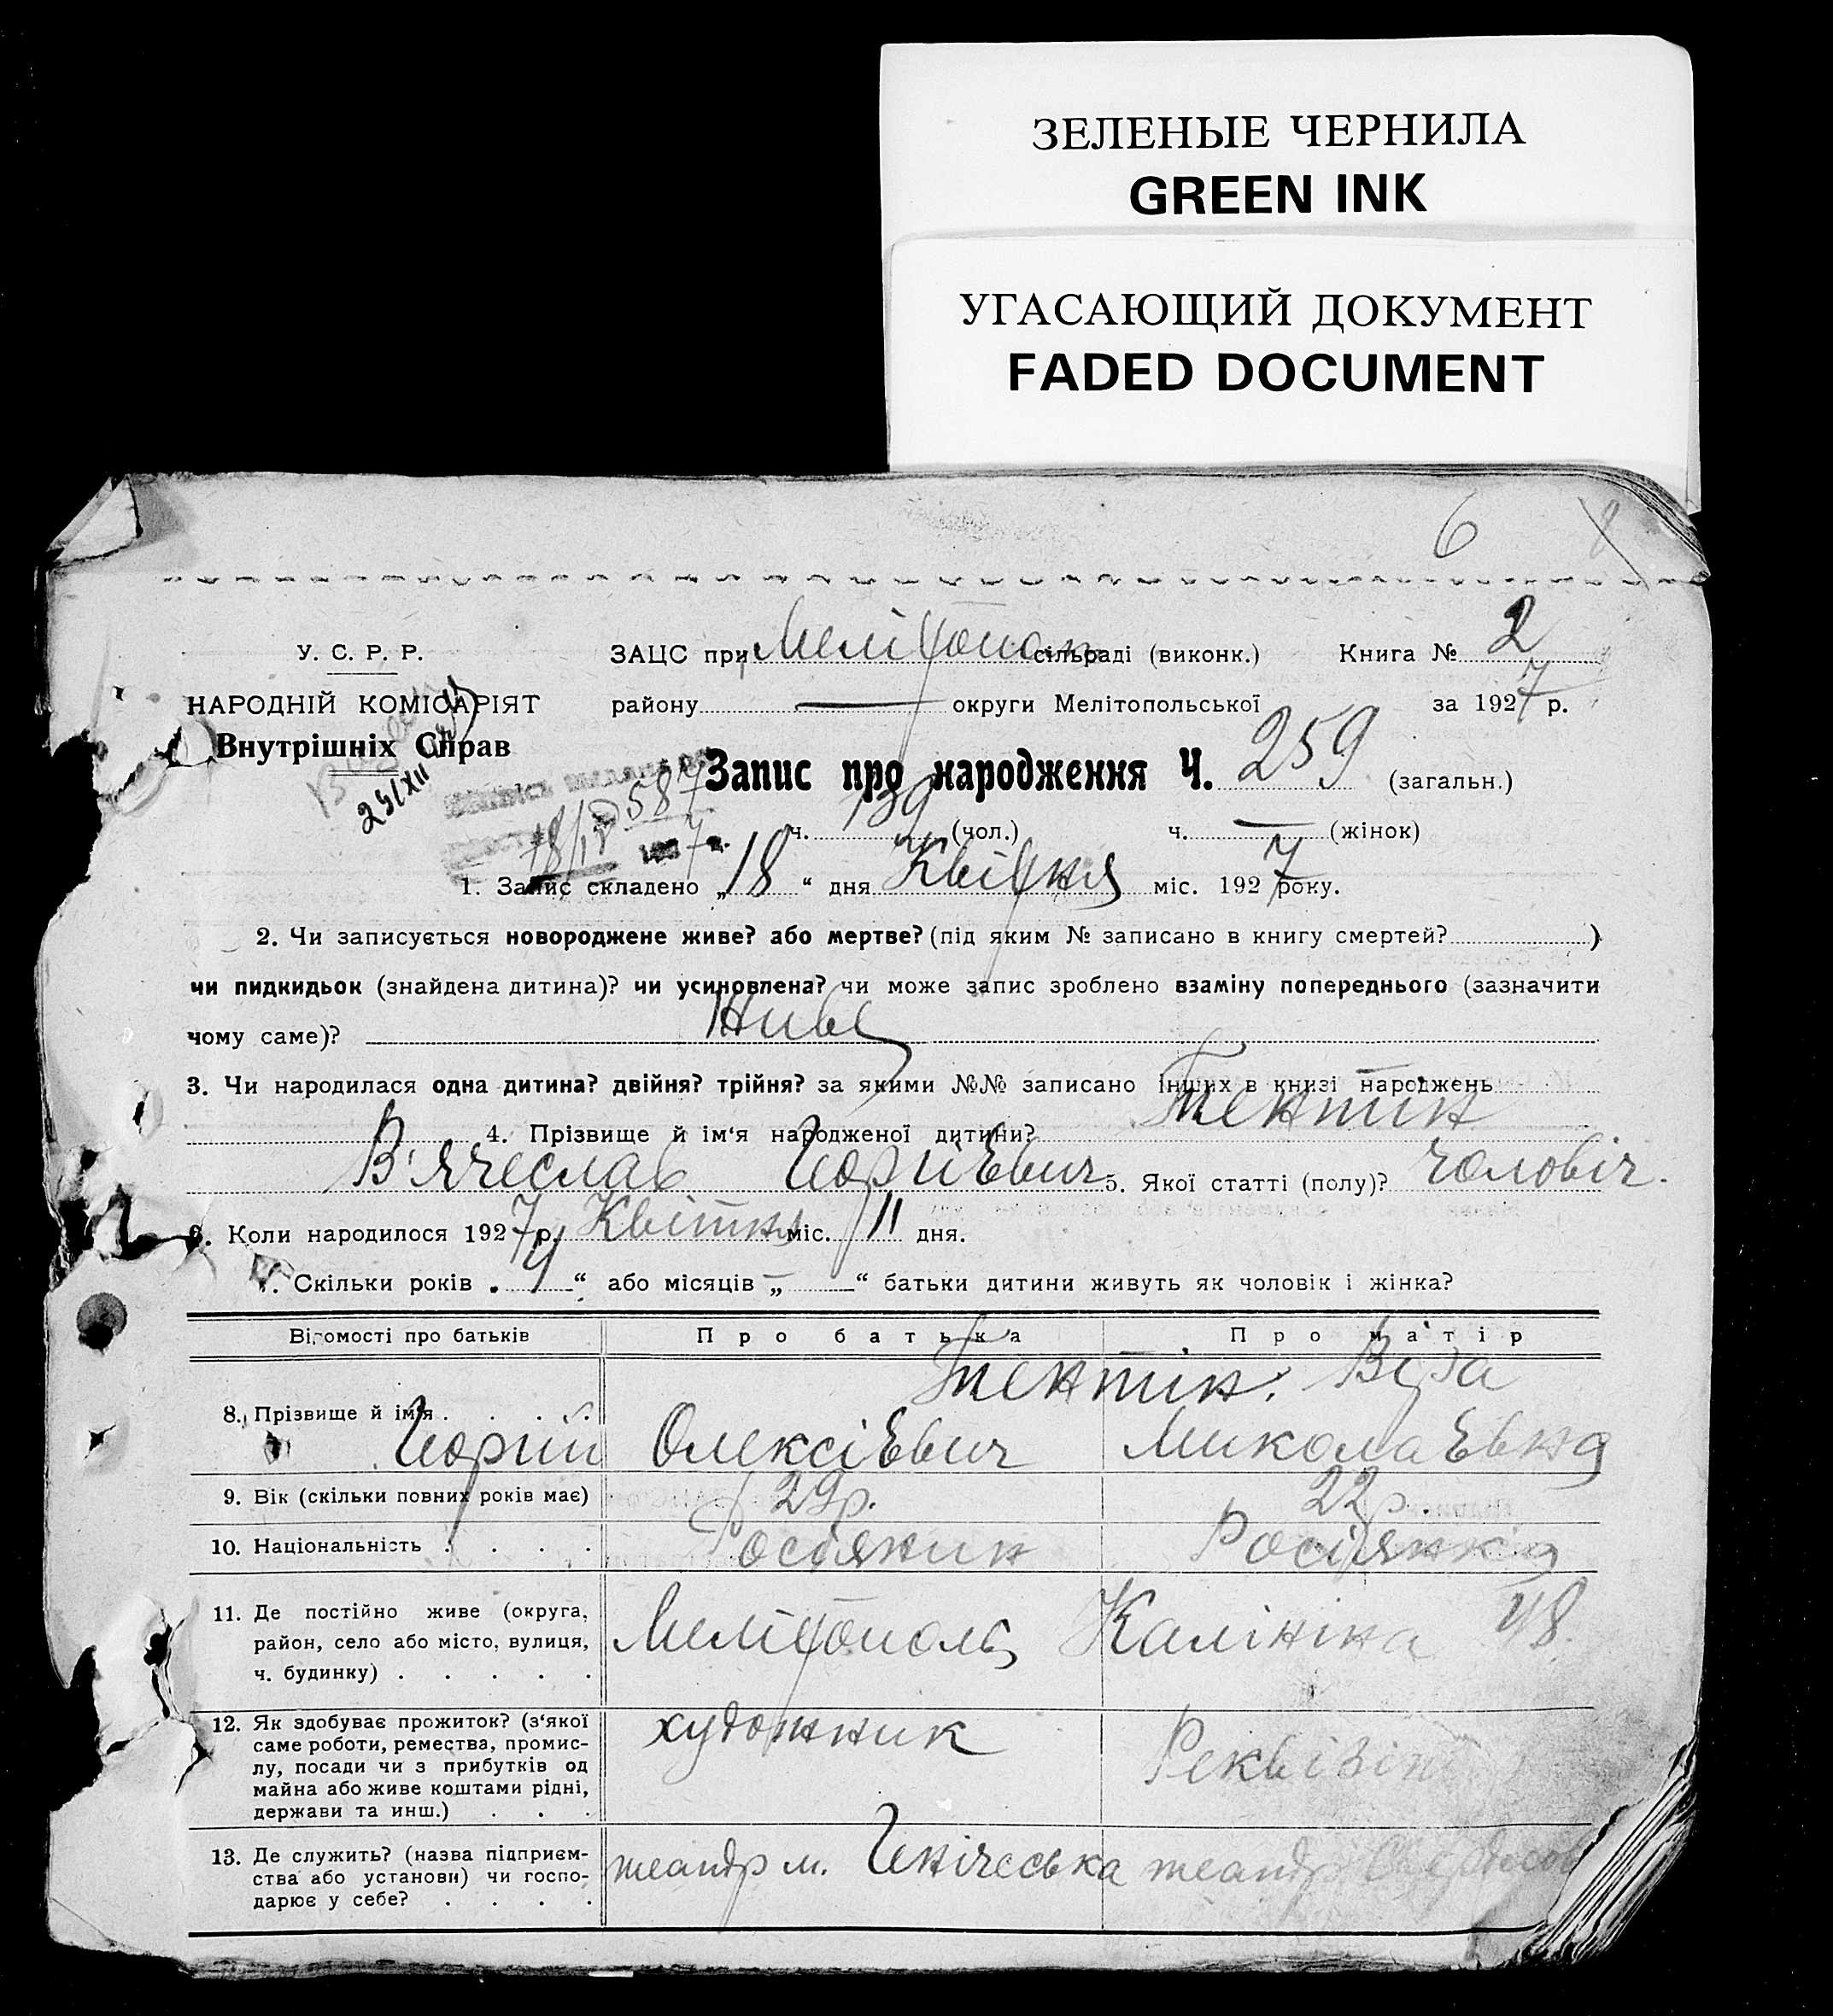 ЗЕЛЕНЫЕ ЧЕРНИЛА
GREEN INK
УГАСАЮЩИЙ ДОКУМЕНТ
FADED DOCUMENT
6
У. С. Р. Р.
НАРОДНІЙ КОМІСАРІЯТ
Внутрішніх Справ
ЗАЦС при Мелітополь сільраді (виконк.) Книга № 2
району — округи Мелітопольської за 1927 р.
29/XII
Запис про народження Ч. 259 (загальн.)
587
ч. 139 (чол.) ч. — (жінок)
1. Запис складено „18“ дня Квітня міс. 1927 року.
2. Чи записується новороджене живе? або мертве? (під яким № записано в книгу смертей? )
чи пидкидьок (знайдена дитина)? чи усиновлена? чи може запис зроблено взаміну попереднього (зазначити
чому саме)? Живе
3. Чи народилася одна дитина? двійня? трійня? за якими №№ записано інших в книзі народжень
4. Прізвище й ім‘я народженої дитини? Тентин
В'ячеслав 5. Якої статті (полу)? чоловіч.
6. Коли народилося 1927 р. Квітня міс. 11 дня.
7. Скільки років 4 “ або місяців „ — “ батьки дитини живуть як чоловік і жінка?
Відомості про батьків Про батька Про матір
Тентін. Віра
8. Прізвище й ім‘я . . . .
Олексієвич Миколаєвна
9. Вік (скільки повних років має) 29р. 22р.
10. Національність . . . . Росіянин Росіянка
11. Де постійно живе (округа,
район, село або місто, вулиця,
ч. будинку) . . . . .
Мелітополь Калініна 48.
12. Як здобуває прожиток? (з‘якої
саме роботи, ремества, промис-
лу, посади чи з прибутків од
майна або живе коштами рідні,
держави та инш.) . . .
художник Реквізіт
13. Де служить? (назва підприєм-
ства або установи) чи госпо-
дарює у себе? . . . .
театр м. Генічеська театр